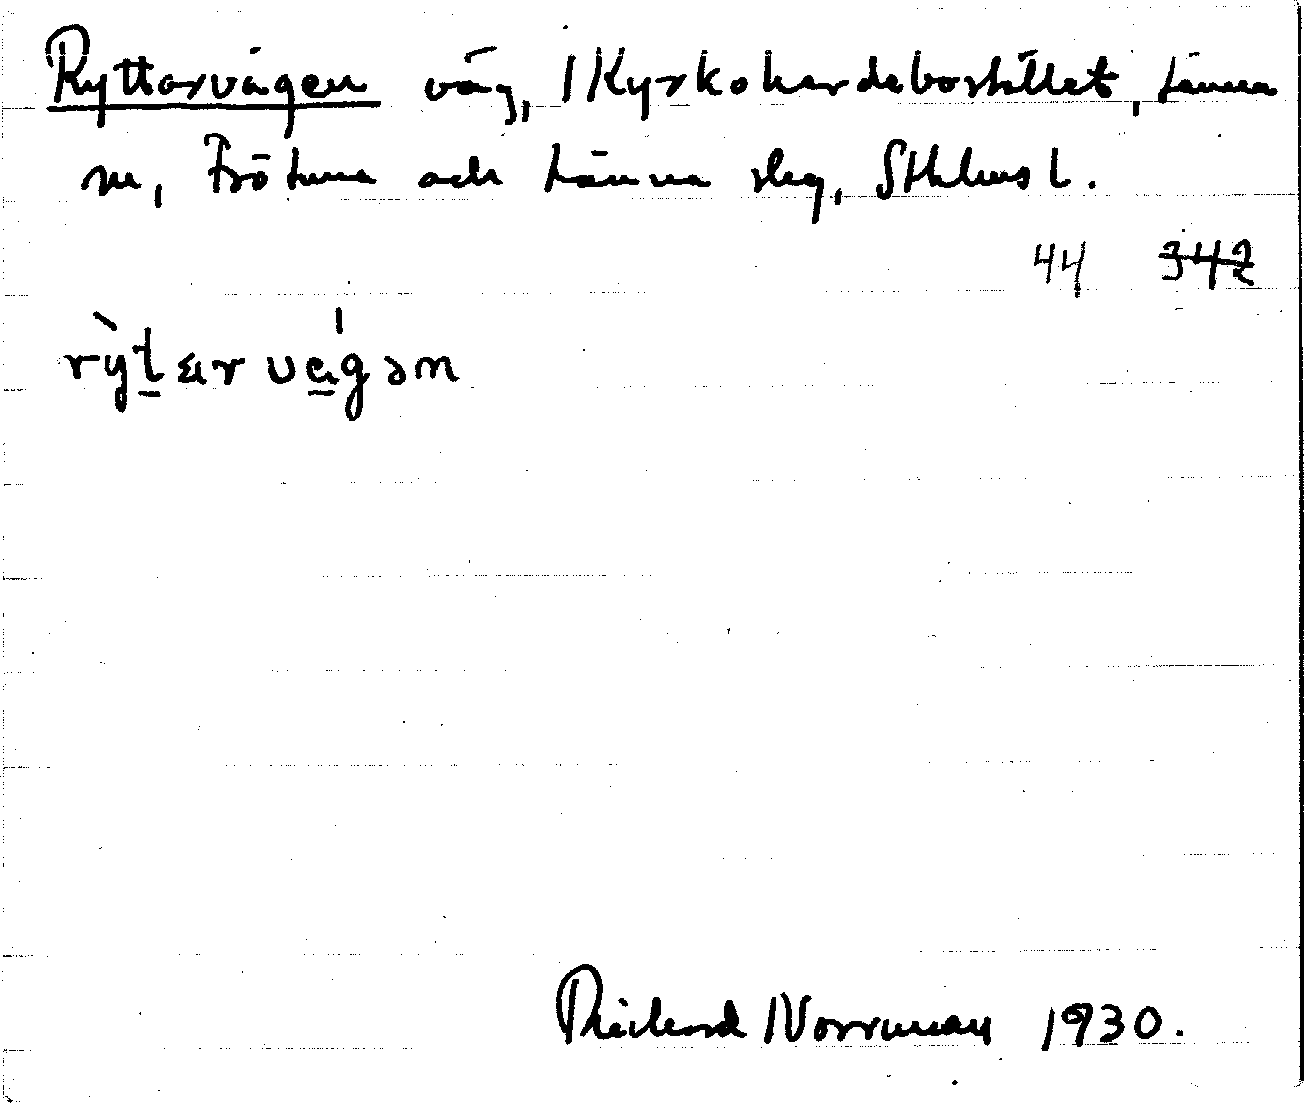 Ryttarvägen väg, Kyrkoherdebostället, Länna
sn, Frötuna och Länna skg, Sthlms l.
44 342
rỳt̠ar vä́gən
Richard Norrman 1930.